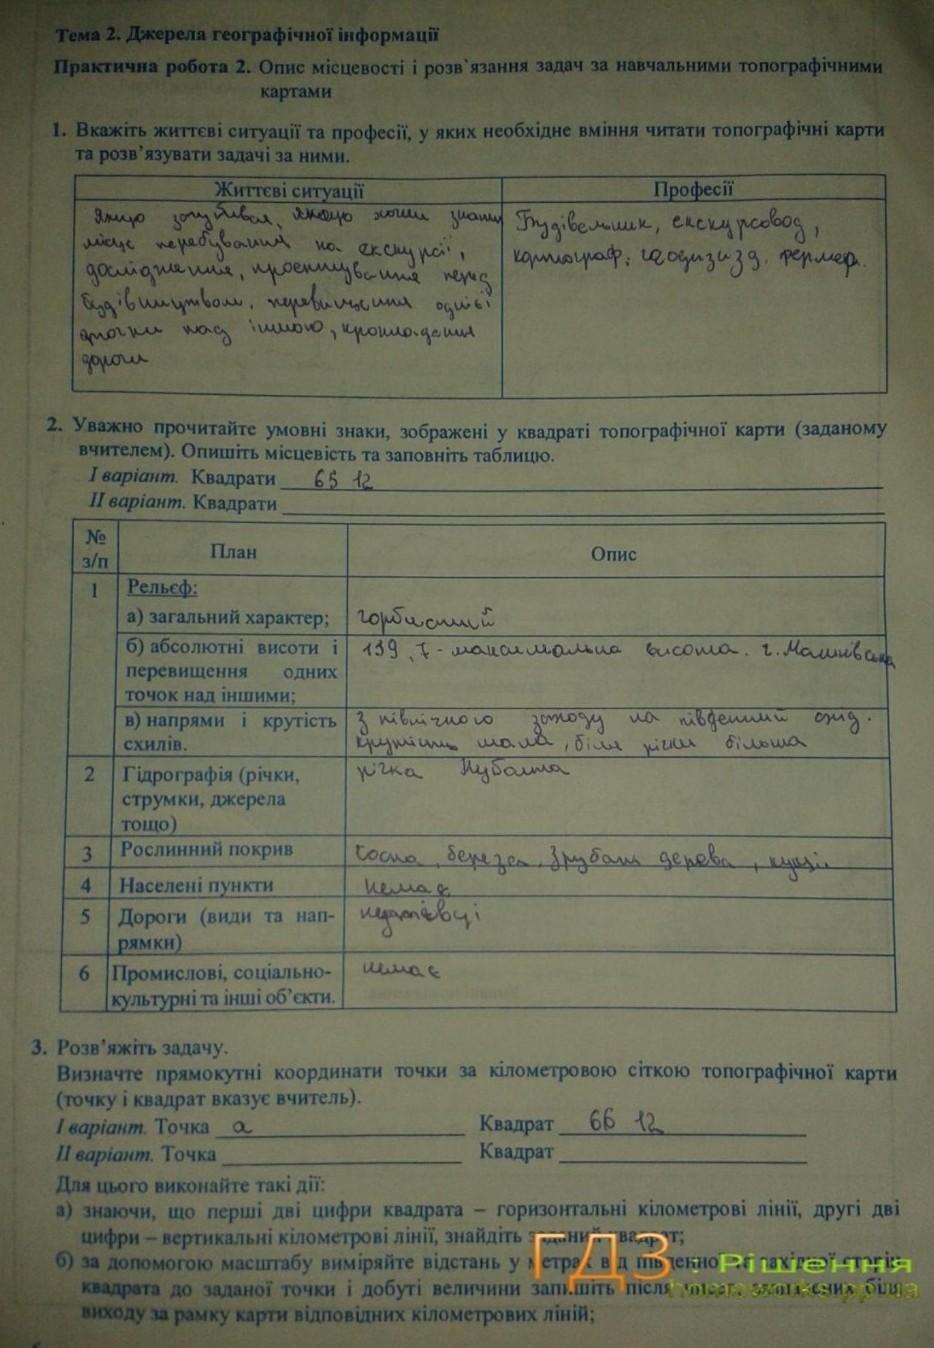 Тема 2. Джерела географічної інформації
Практична робота 2. Опис місцевості і розв'язання задач за навчальними топографічними
картами
1. Вкажіть життєві ситуації та професії, у яких необхідне вміння читати топографічні карти
та розв'язувати задачі за ними.
Життєві ситуації
Професії
Якщо загубився, якщо хочеш знати
місце перебування на екскурсії,
дослідження, проектування перед
будівництвом, перевищення однієї
точки над іншою, прокладання
дороги
Будівельник, екскурсовод,
картограф, геодизизд, фермер.
2. Уважно прочитайте умовні знаки, зображені у квадраті топографічної карти (заданому
вчителем). Опишіть місцевість та заповніть таблицю.
I варіант. Квадрати 65 12
II варіант. Квадрати
№
з/п
План
Опис
1
Рельєф:
а) загальний характер;
горбистий
б) абсолютні висоти і
перевищення одних
точок над іншими;
139,7 - максимальна висота. г.
в) напрями і крутість
схилів.
З північного заходу на південний схід.
крутість мала, біля річки більша
2
Гідрографія (річки,
струмки, джерела
тощо)
річка Кубалта
3
Рослинний покрив
Сосна, береза, зрубані дерева, кущі.
4
Населені пункти
немає
5
Дороги (види та нап-
рямки)
6
Промислові, соціально-
культурні та інші об'єкти.
немає
3. Розв'яжіть задачу.
Визначте прямокутні координати точки за кілометровою сіткою топографічної карти
(точку і квадрат вказує вчитель).
I варіант. Точка а Квадрат 66 12
II варіант. Точка Квадрат
Для цього виконайте такі дії:
а) знаючи, що перші дві цифри квадрата – горизонтальні кілометрові лінії, другі дві
цифри – вертикальні кілометрові лінії, знайдіть заданий квадрат;
б) за допомогою масштабу виміряйте відстань у метрах від південної західної сторін
квадрата до заданої точки і добуті величини запишіть після біля
виходу за рамку карти відповідних кілометрових ліній;
ГДЗ : Рішення